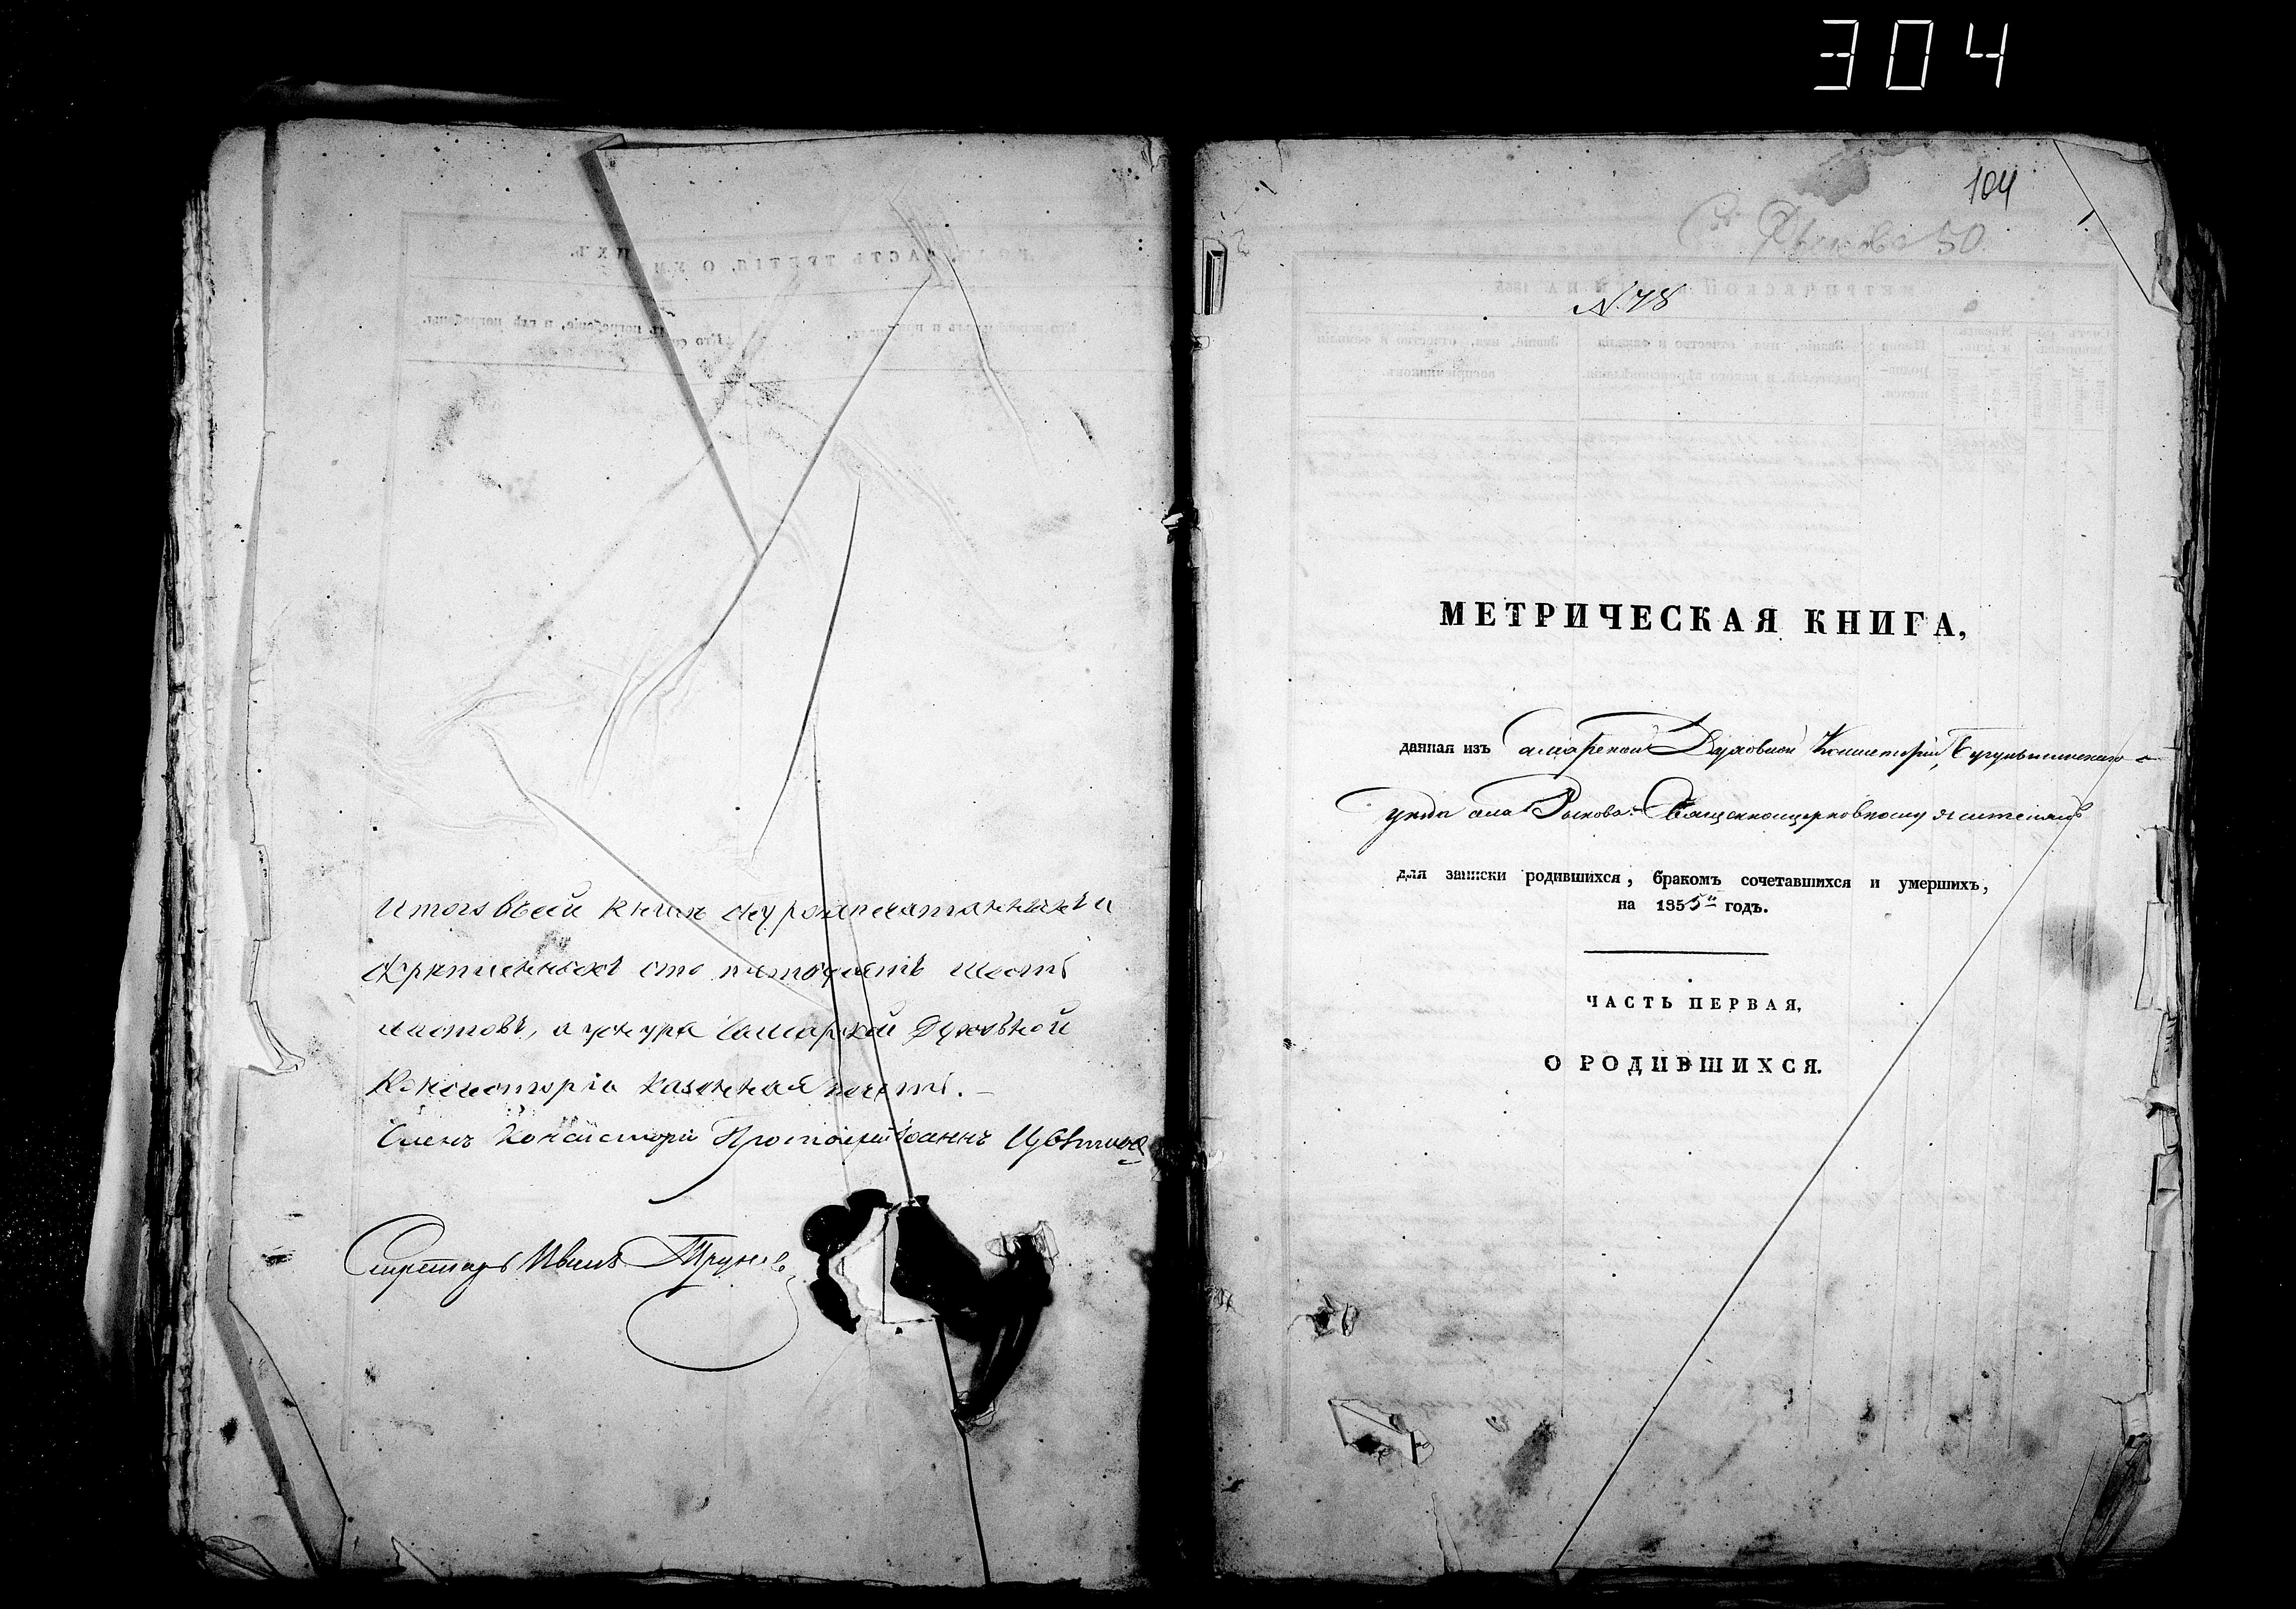 304
Итого въ сей книгѣ нумерованныхъ и
скрѣпленныхъ сто пятьдесятъ шесть
листовъ, а у шнура Самарской Духовной
Консисторіи казенная печать. –
Членъ Консисторіи Протоіерей Іоаннъ Цвѣтковъ
Секретарь Иванъ Труновъ
104
Рыкова 50.
N. 78
МЕТРИЧЕСКАЯ КНИГА,
данная изъ Самарской Духовной Консисторіи, Бугульминскаго
уѣзда села Рыкова Священноцерковнослужителямъ
для записки родившихся, бракомъ сочетавшихся и умершихъ,
на 1855й годъ.
ЧАСТЬ ПЕРВАЯ,
О РОДИВШИХСЯ.